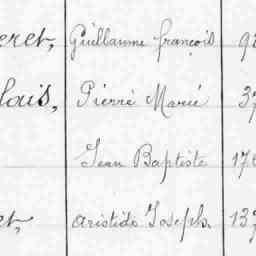 eret, Guillaume françois
lais, Pierre Marie 37
Jean Baptiste 17
et, aristide Joseph 13